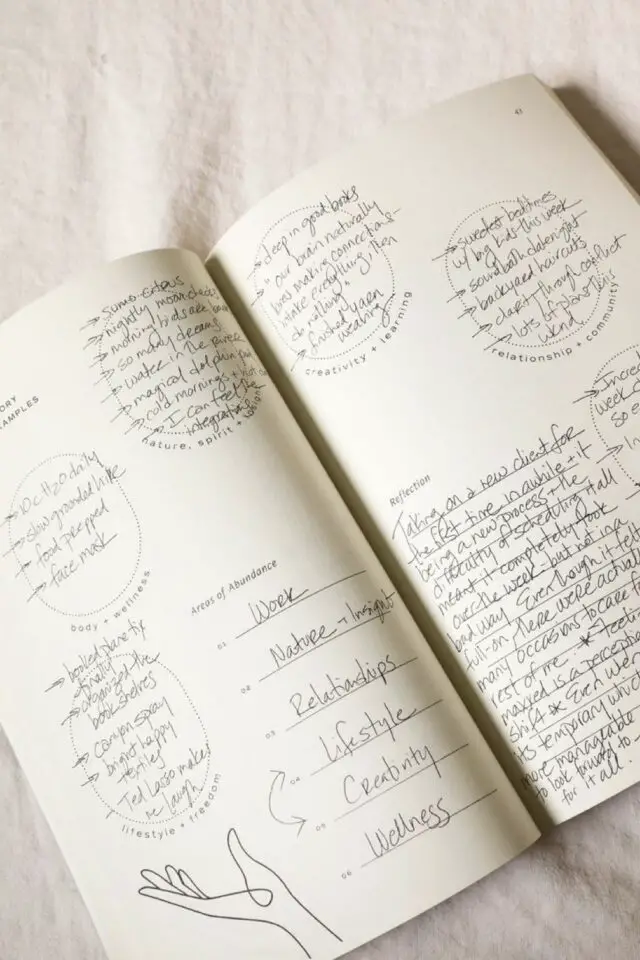 ORY
AMPLES
→ sumo citrus
→ nightly moon checks
→ morning birds are
→ so many dreams
→ water in the river
→ magical dolphin
→ cold mornings +
→ I can feel the
integration
nature, spirit + insight
→ 10c H2O daily
→ slow grounded hike
→ food prepped
→ face mask
body + wellness
→ booked plane tix
finally
→ organized the
bookshelves
→ canyon spray
→ bright happy
smiles
→ Ted Lasso makes
me laugh
lifestyle + freedom
Areas of Abundance
01 Work
02 Nature + Insight
03 Relationships
04 Lifestyle
05 Creativity
06 Wellness
→ deep in good books
→ "our brain naturally
was making connections
intake everything, then
do nothing"
→ finished yarn
weaving
creativity + learning
→ sweetest bedtimes
w/ big kids this week
→ soundbath date night
→ backyard haircuts
→ clarity through conflict
→ lots of
relationship + community
→ Increa
week
so e
Reflection
Taking on a new client for
the first time in awhile + it
being a new process + the
difficulty of scheduling it all
meant it completely took
over the week - but not in a
bad way. Even though it felt
full-on, there were actual
many occasions to care f
rest of me. * Feeling
maxxed is a perception
shift * Even well
its temporary which
more manageable
to look forward to
for it all.